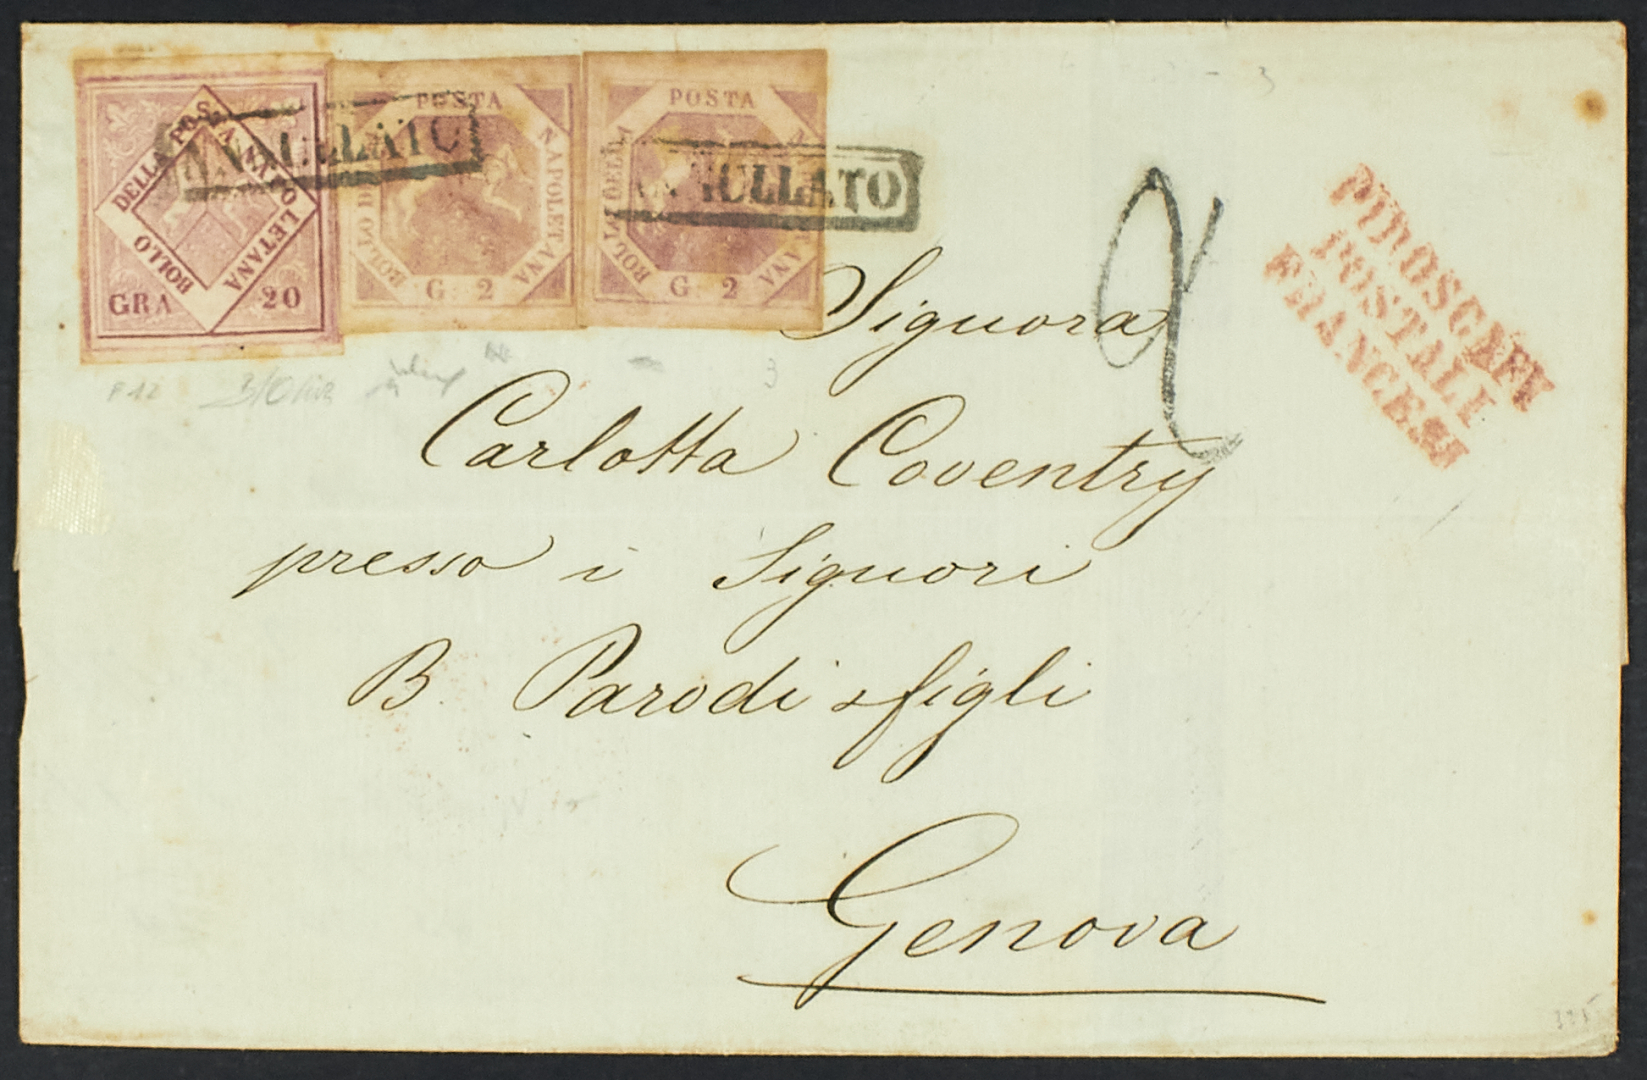 BOLLO DELLA POSTA NAPOLETANA
GRA 20
ANNULLATO
POSTA
NAPOLETANA
BOLLO
G. 2
POSTA
BOLLO DELLA
G. 2
ANNULLATO
2
PIROSCAFI
POSTALI
FRANCESI
Signora
Carlotta Coventry
presso i Signori
B. Parodi e figli
Genova
3